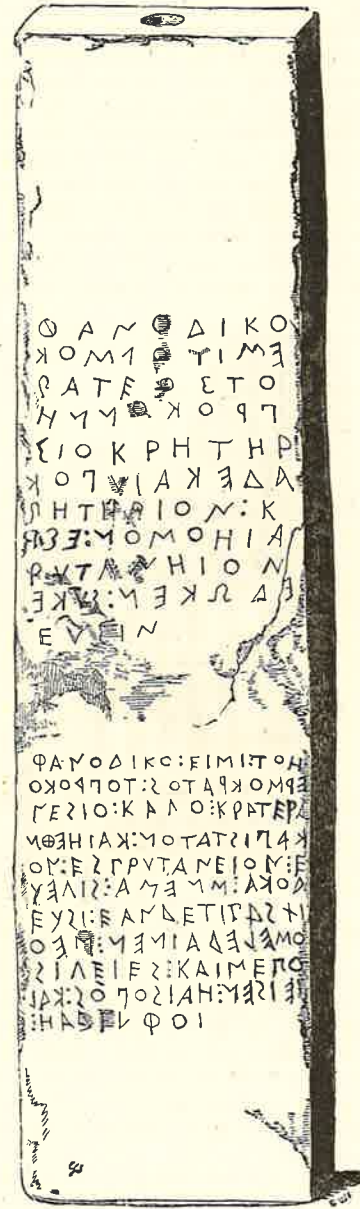 ΦΑΝΟΔΙΚΟ
ΕΜΙΤΟΡΜΟΚ
ΡΑΤΕΟΣΤΟ
ΠΡΟΚΟΝΝΗ
ΣΙΟΚΡΗΤΗΡ
ΑΔΕΚΑΙΥΠΟΚ
ΡΗΤΗΡΙΟΝ:Κ
ΑΙΗΘΜΟΝ:ΕΣΠ
ΡΥΤΑΝΗΙΟΝ
ΕΔΩΚΕΝ:ΣΥΚΕ
ΕΥΣΙΝ
ΦΑΝΟΔΙΚΟ:ΕΙΜΙ:ΤΟΗ
ΕΡΜΟΚΡΑΤΟΣ:ΤΟΠΡΟΚΟ
ΝΕΣΙΟ:ΚΑΓΟ:ΚΡΑΤΕΡΑ
ΚΑΠΙΣΤΑΤΟΝ:ΚΑΙΗΕΘΜ
ΟΝ:ΕΣΠΡΥΤΑΝΕΙΟΝ:Ε
ΔΟΚΑ:ΜΝΕΜΑ:ΣΙΓΕΥ
ΕΥΣΙ:ΕΑΝΔΕΤΙΠΑΣΧ
ΟΜΕΛΕΔΑΙΝΕΝ:ΜΕΟ
ΣΙΓΕΙΕΣ:ΚΑΙΜΕΠΟ
ΕΙΣΕΝ:ΗΑΙΣΟΠΟΣ:ΚΑΙ
:ΗΑΔΕΛΦΟΙ